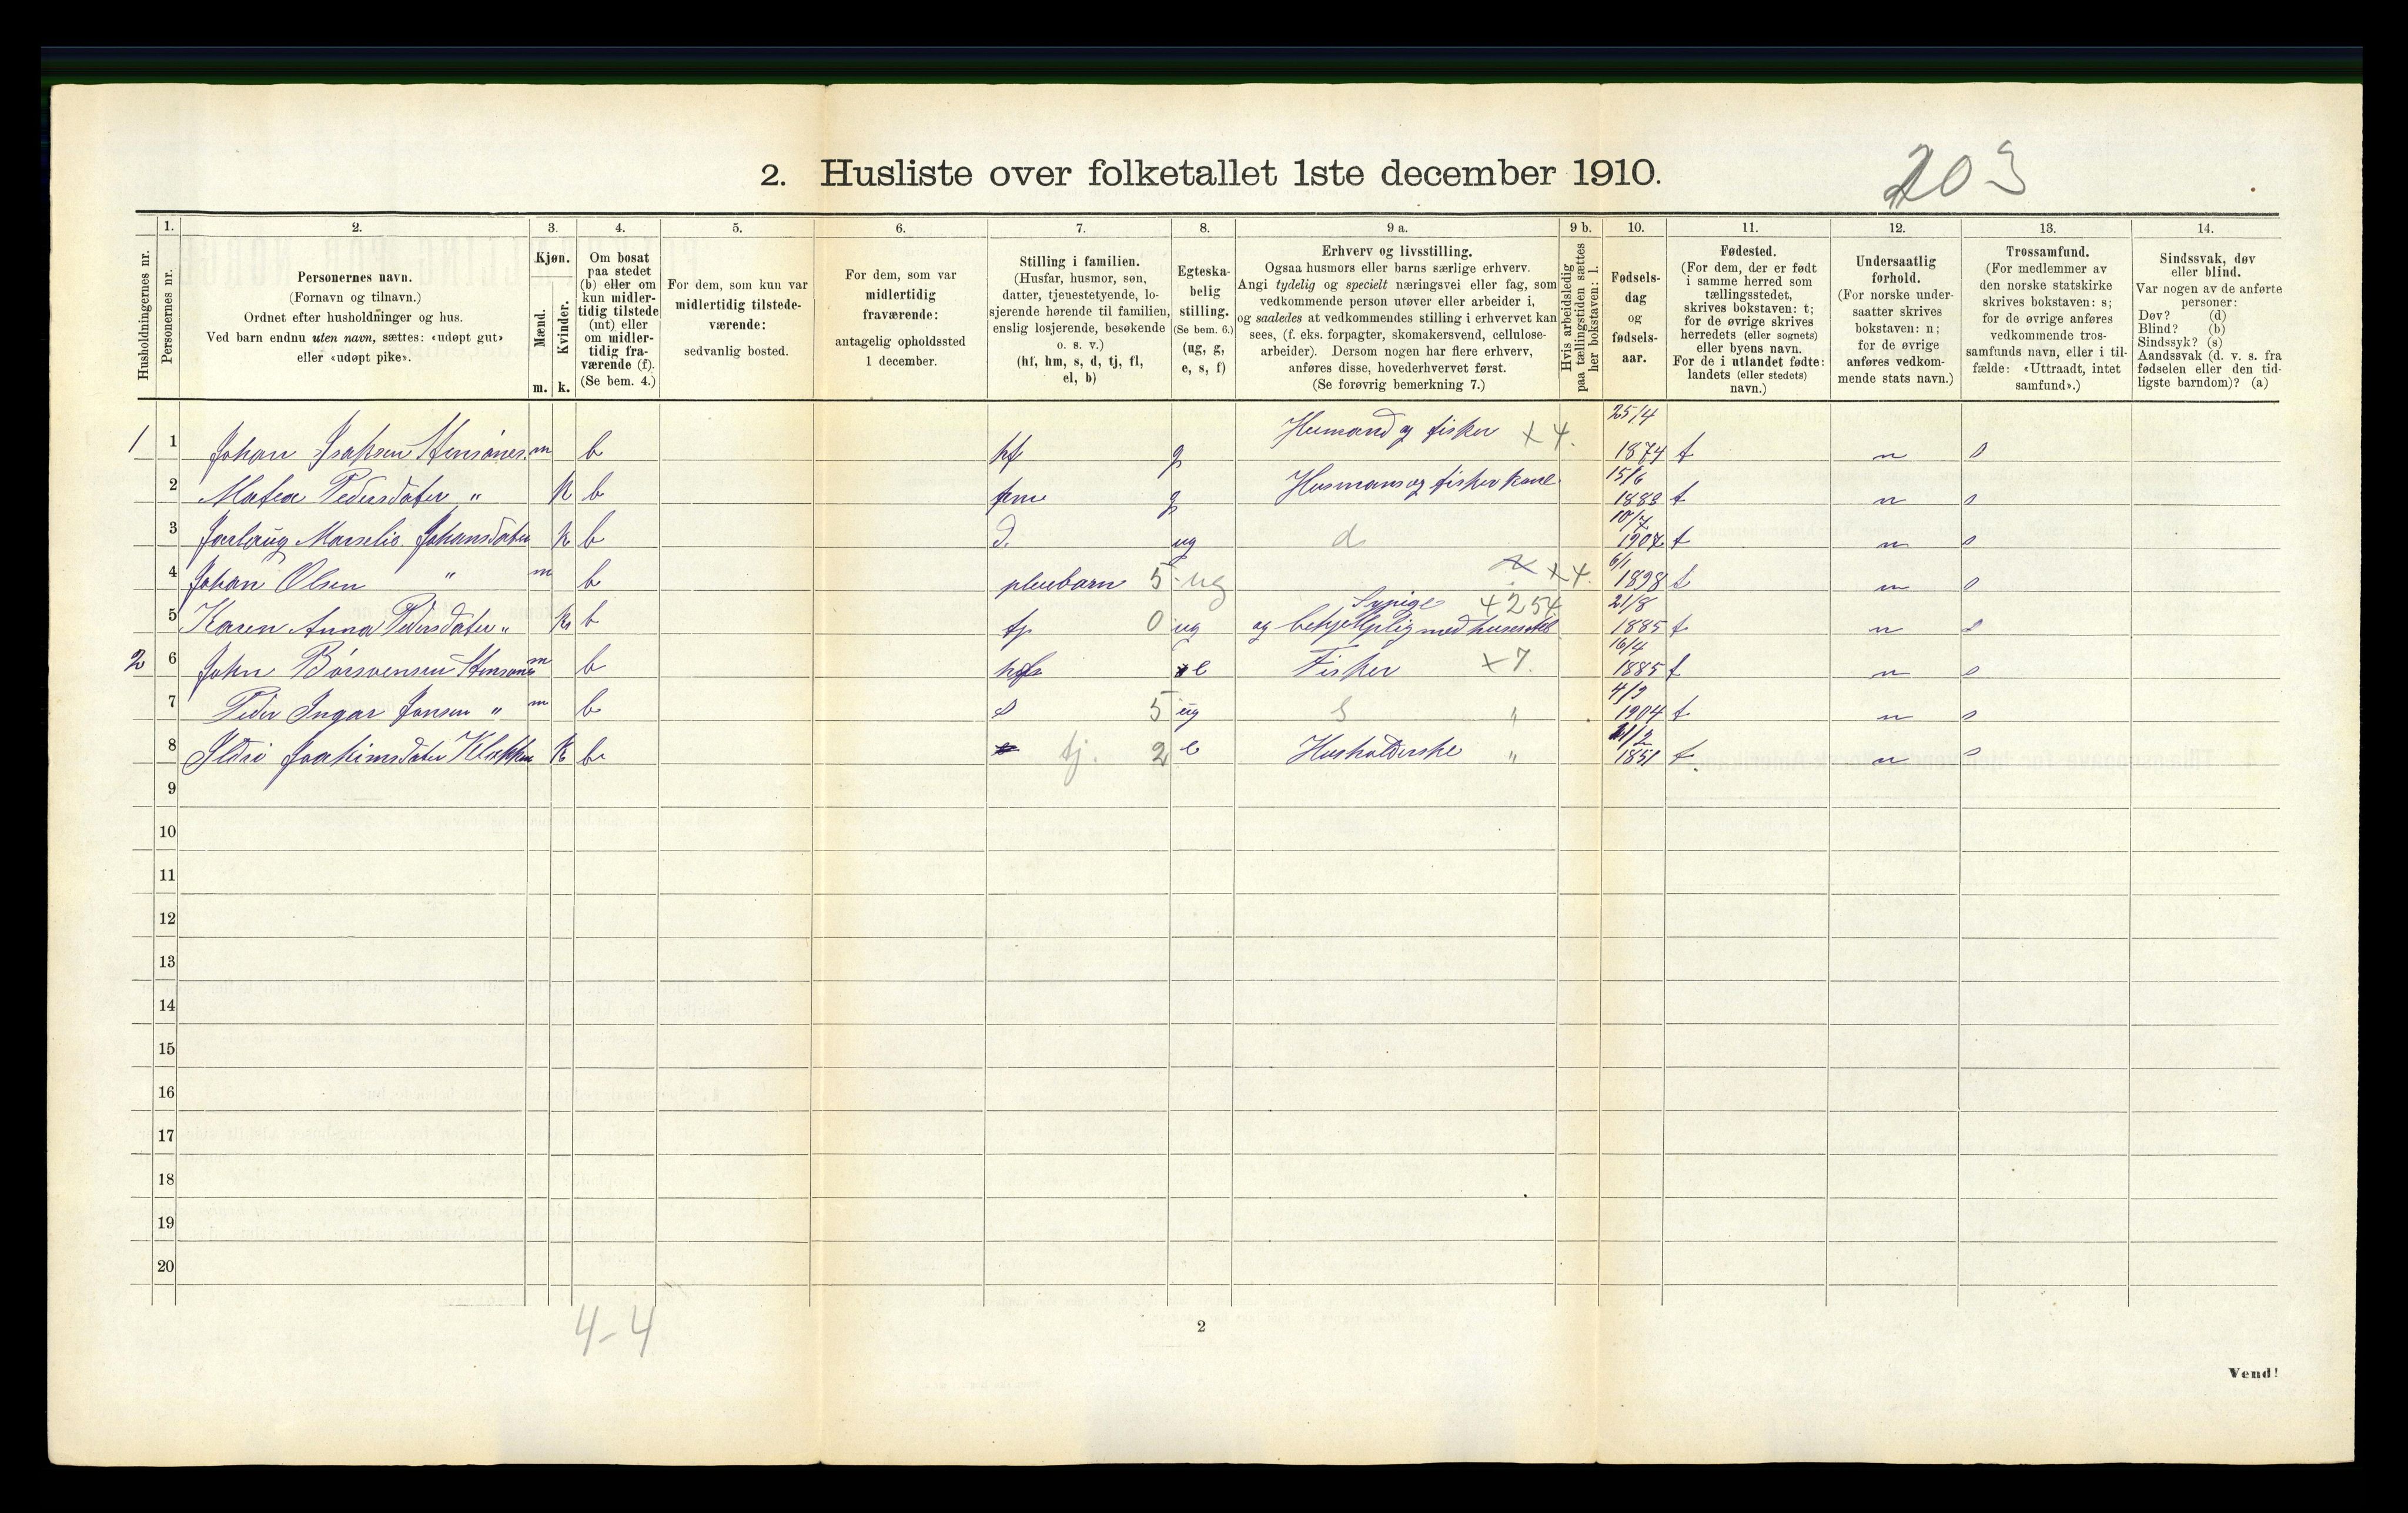 2. Husliste over folketallet 1ste december 1910.
203
Husholdningernes nr.
1. Personernes nr.
2. Personernes navn. (Fornavn og tilnavn.) Ordnet efter husholdninger og hus. Ved barn endnu uten navn, sættes: «udøpt gut» eller «udøpt pike».
3. Kjøn. Mænd. m. Kvinder. k.
4. Om bosat paa stedet (b) eller om kun midlertidig tilstede (mt) eller om midlertidig fraværende (f). (Se bem. 4.)
5. For dem, som kun var midlertidig tilstedeværende: sedvanlig bosted.
6. For dem, som var midlertidig fraværende: antagelig opholdssted 1 december.
7. Stilling i familien. (Husfar, husmor, søn, datter, tjenestetyende, losjerende hørende til familien, enslig losjerende, besøkende o. s. v.) (hf, hm, s, d, tj, fl, el, b)
8. Egteskabelig stilling. (Se bem. 6.) (ug, g, e, s, f)
9 a. Erhverv og livsstilling. Ogsaa husmors eller barns særlige erhverv. Angi tydelig og specielt næringsvei eller fag, som vedkommende person utøver eller arbeider i, og saaledes at vedkommendes stilling i erhvervet kan sees, (f. eks. forpagter, skomakersvend, cellulosearbeider). Dersom nogen har flere erhverv, anføres disse, hovederhvervet først. (Se forøvrig bemerkning 7.)
9 b. Hvis arbeidsledig paa tællingstiden sættes her bokstaven: l.
10. Fødselsdag og fødselsaar.
11. Fødested. (For dem, der er født i samme herred som tællingsstedet, skrives bokstaven: t; for de øvrige skrives herredets (eller sognets) eller byens navn. For de i utlandet fødte: landets (eller stedets) navn.)
12. Undersaatlig forhold. (For norske undersaatter skrives bokstaven: n; for de øvrige anføres vedkommende stats navn.)
13. Trossamfund. (For medlemmer av den norske statskirke skrives bokstaven: s; for de øvrige anføres vedkommende trossamfunds navn, eller i tilfælde: «Uttraadt, intet samfund».)
14. Sindssvak, døv eller blind. Var nogen av de anførte personer: Døv? (d) Blind? (b) Sindssyk? (s) Aandssvak (d. v. s. fra fødselen eller den tidligste barndom)? (a)
1 1 Johan Isaksen m b hf g Husmand og fisker x 4. 25/4 1874 t n s
2 Matea Pedersdater " k b g Husmans og fisker kone 15/6 1883 t n s
3 Jarlaug Marselie Johansdater k b d. ug d 10/7 1907 t n s
4 Johan Olsen " m b pleiebarn 5 ug x 4. 6/1 1898 t n s
5 Karen Anna Pedersdater " k b tj 0 ug Sypige og behjelpelig med husstel 4254 21/8 1885 t n s
2 6 John m b hf e Fisker x 7. 16/4 1885 t n s
7 Peder Ingar Jonsen " m b s 5 ug S " 4/9 1904 t n s
8 Joakimsdater k b tj. 2 e Husholderske " 1851 t n s
9
10
11
12
13
14
15
16
17
18
19
20
4-4
2
Vend!